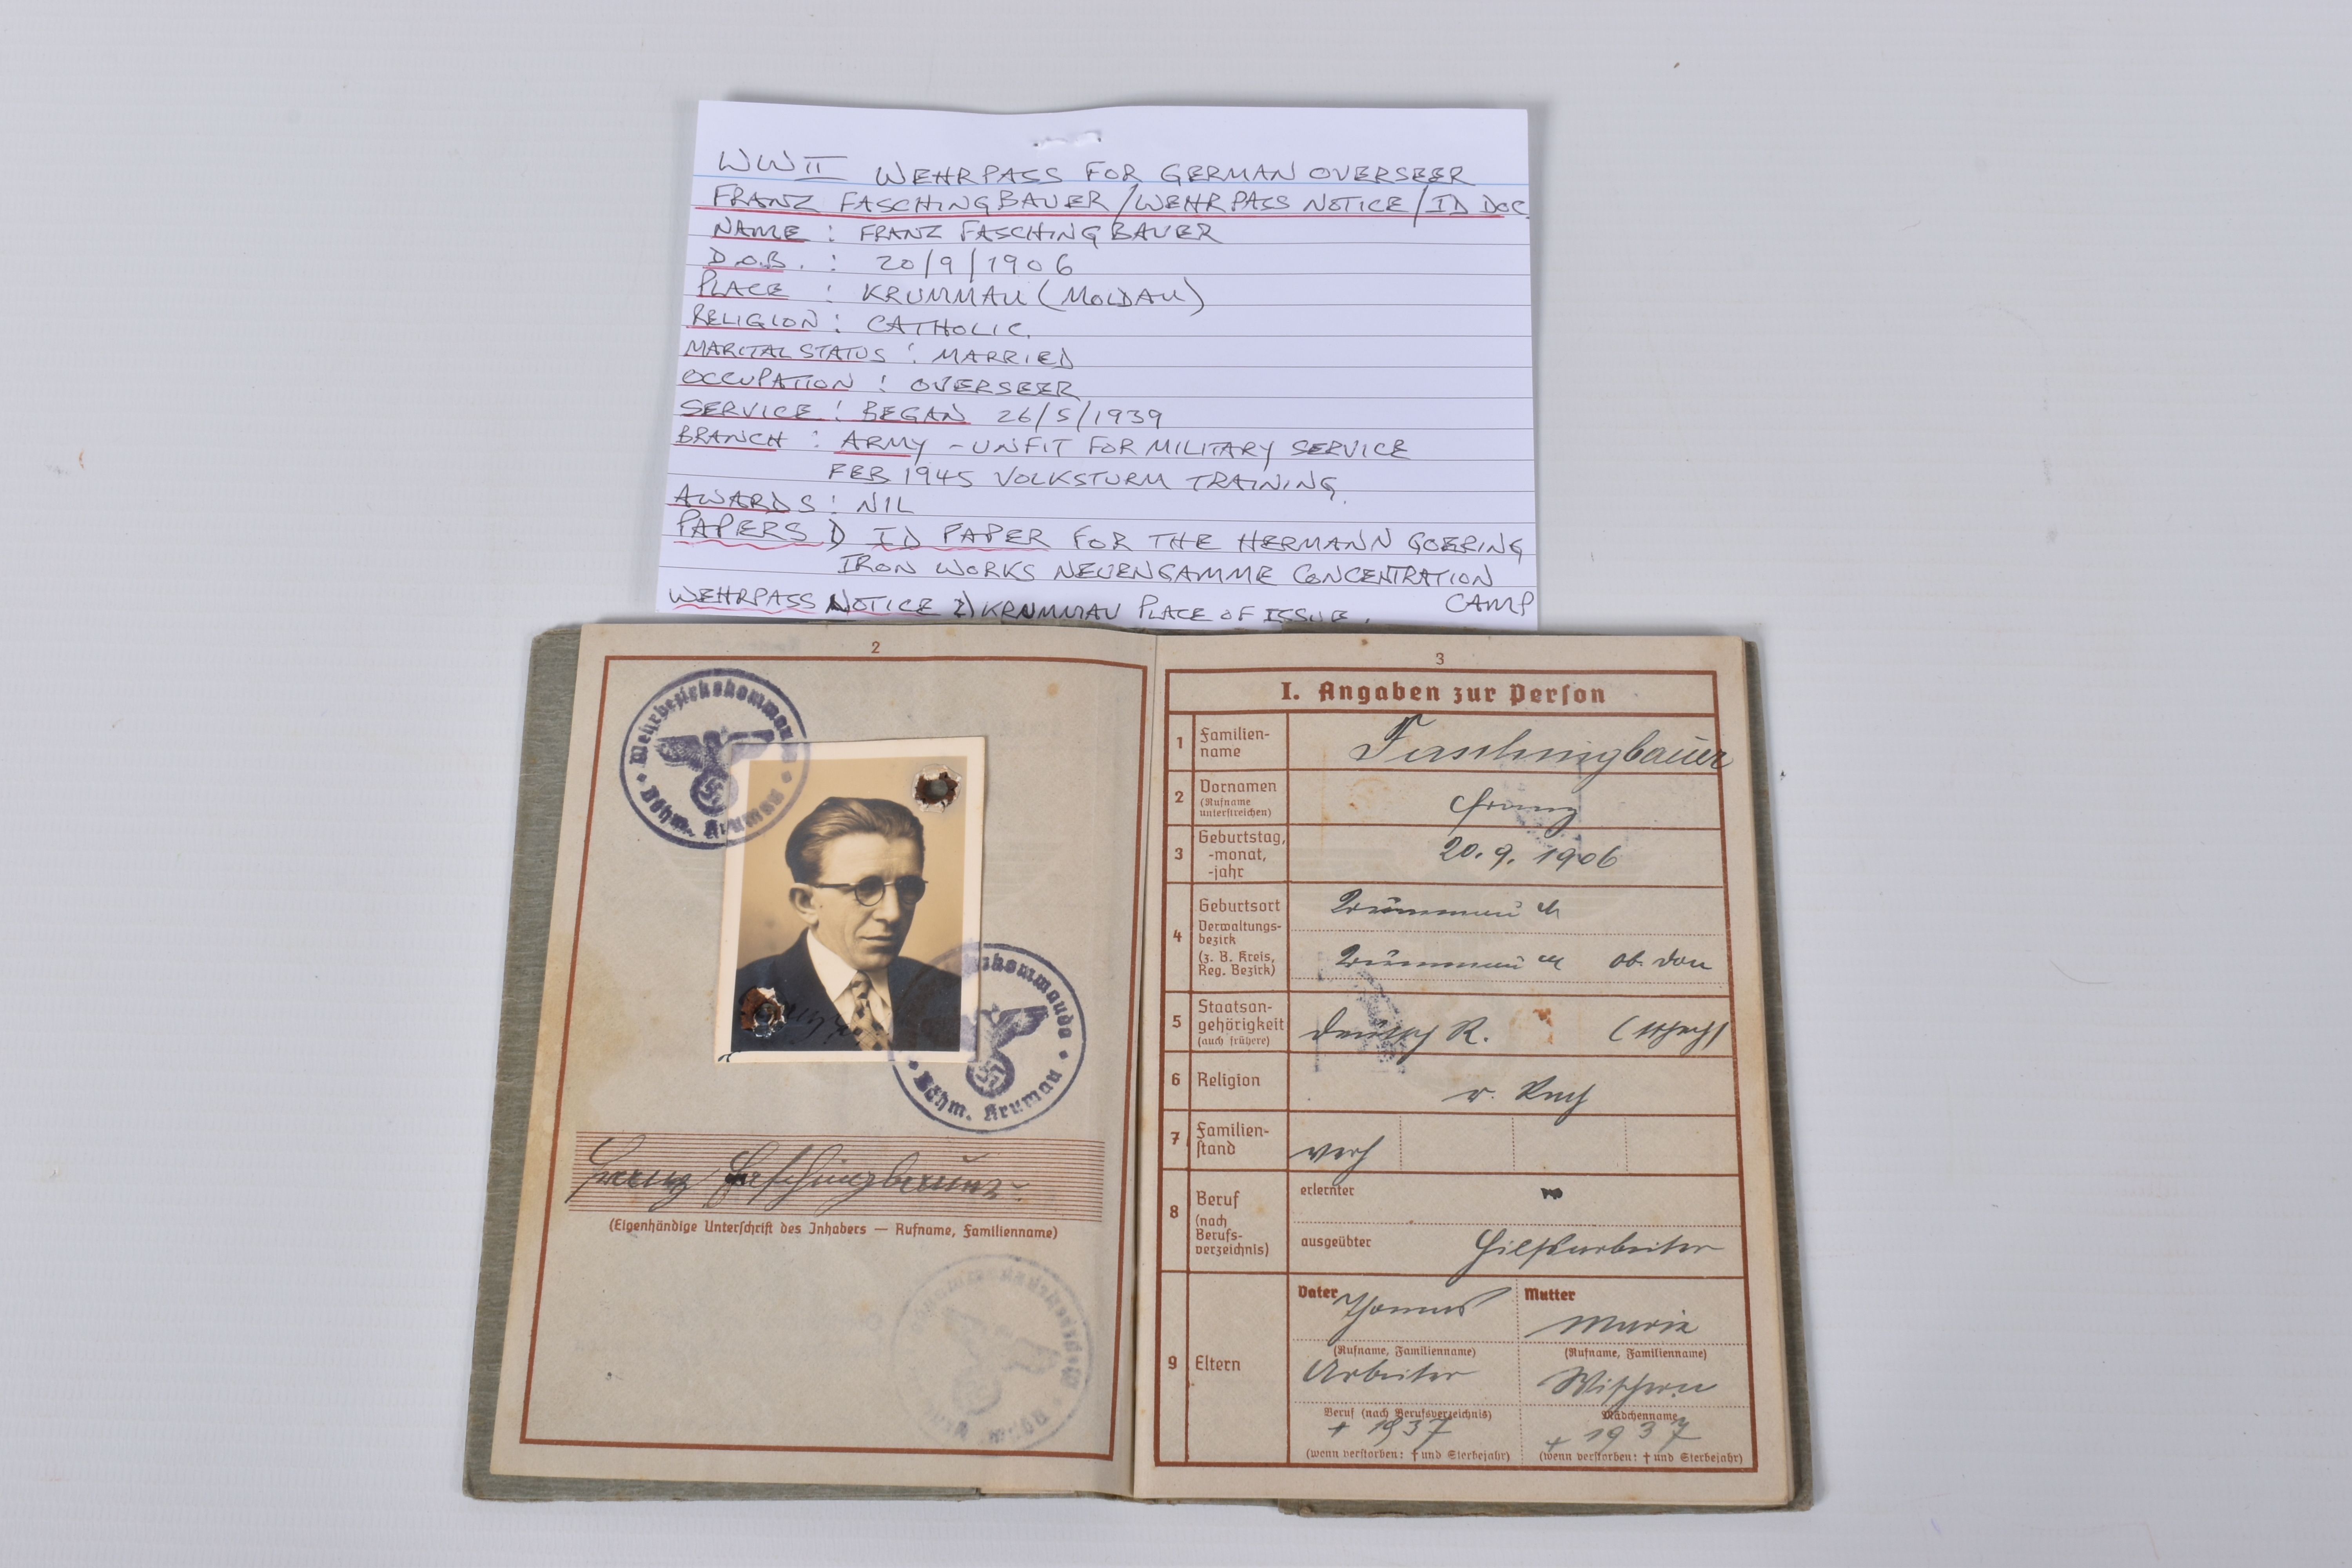 WWII WEHRPASS FOR GERMAN OVERSEER
FRANZ FASCHINGBAUER/WEHRPASS NOTICE/ID DOC.
NAME : FRANZ FASCHINGBAUER
D.O.B. : 20/9/1906
PLACE : KRUMMAU (MOLDAU)
RELIGION : CATHOLIC.
MARITAL STATUS : MARRIED
OCCUPATION : OVERSEER
SERVICE : BEGAN 26/5/1939
BRANCH : ARMY - UNFIT FOR MILITARY SERVICE
FEB 1945 VOLKSTURM TRAINING.
AWARDS : NIL
PAPERS 1) ID PAPER FOR THE HERMANN GOERING
IRON WORKS NEUENGAMME CONCENTRATION
CAMP
WEHRPASS NOTICE 2) KRUMMAU PLACE OF ISSUE.
2
Wehrbezirkskommando
Böhm. Krumau
kommando
Böhm. Krumau
Franz Faschingbauer.
(Eigenhändige Unterschrift des Inhabers — Rufname, Familienname)
3
I. Angaben zur Person
1 Familien-
name
Faschingbauer
2 Vornamen
(Rufname
unterstreichen)
Franz
3 Geburtstag,
-monat,
-jahr
20.9.1906
4 Geburtsort
Verwaltungs-
bezirk
(z. B. Kreis,
Reg. Bezirk)
Krummau
Krummau ob. Don
5 Staatsan-
gehörigkeit
(auch frühere)
deutsch R. (tschech)
6 Religion
r. kath
7 Familien-
stand
verh
8 Beruf
(nach
Berufs-
verzeichnis)
erlernter
ausgeübter Hilfsarbeiter
9 Eltern
Vater Thomas
(Rufname, Familienname)
Arbeiter
Beruf (nach Berufsverzeichnis)
+ 1937
(wenn verstorben: † und Sterbejahr)
Mutter
Maria
(Rufname, Familienname)
Mädchenname
+ 1937
(wenn verstorben: † und Sterbejahr)